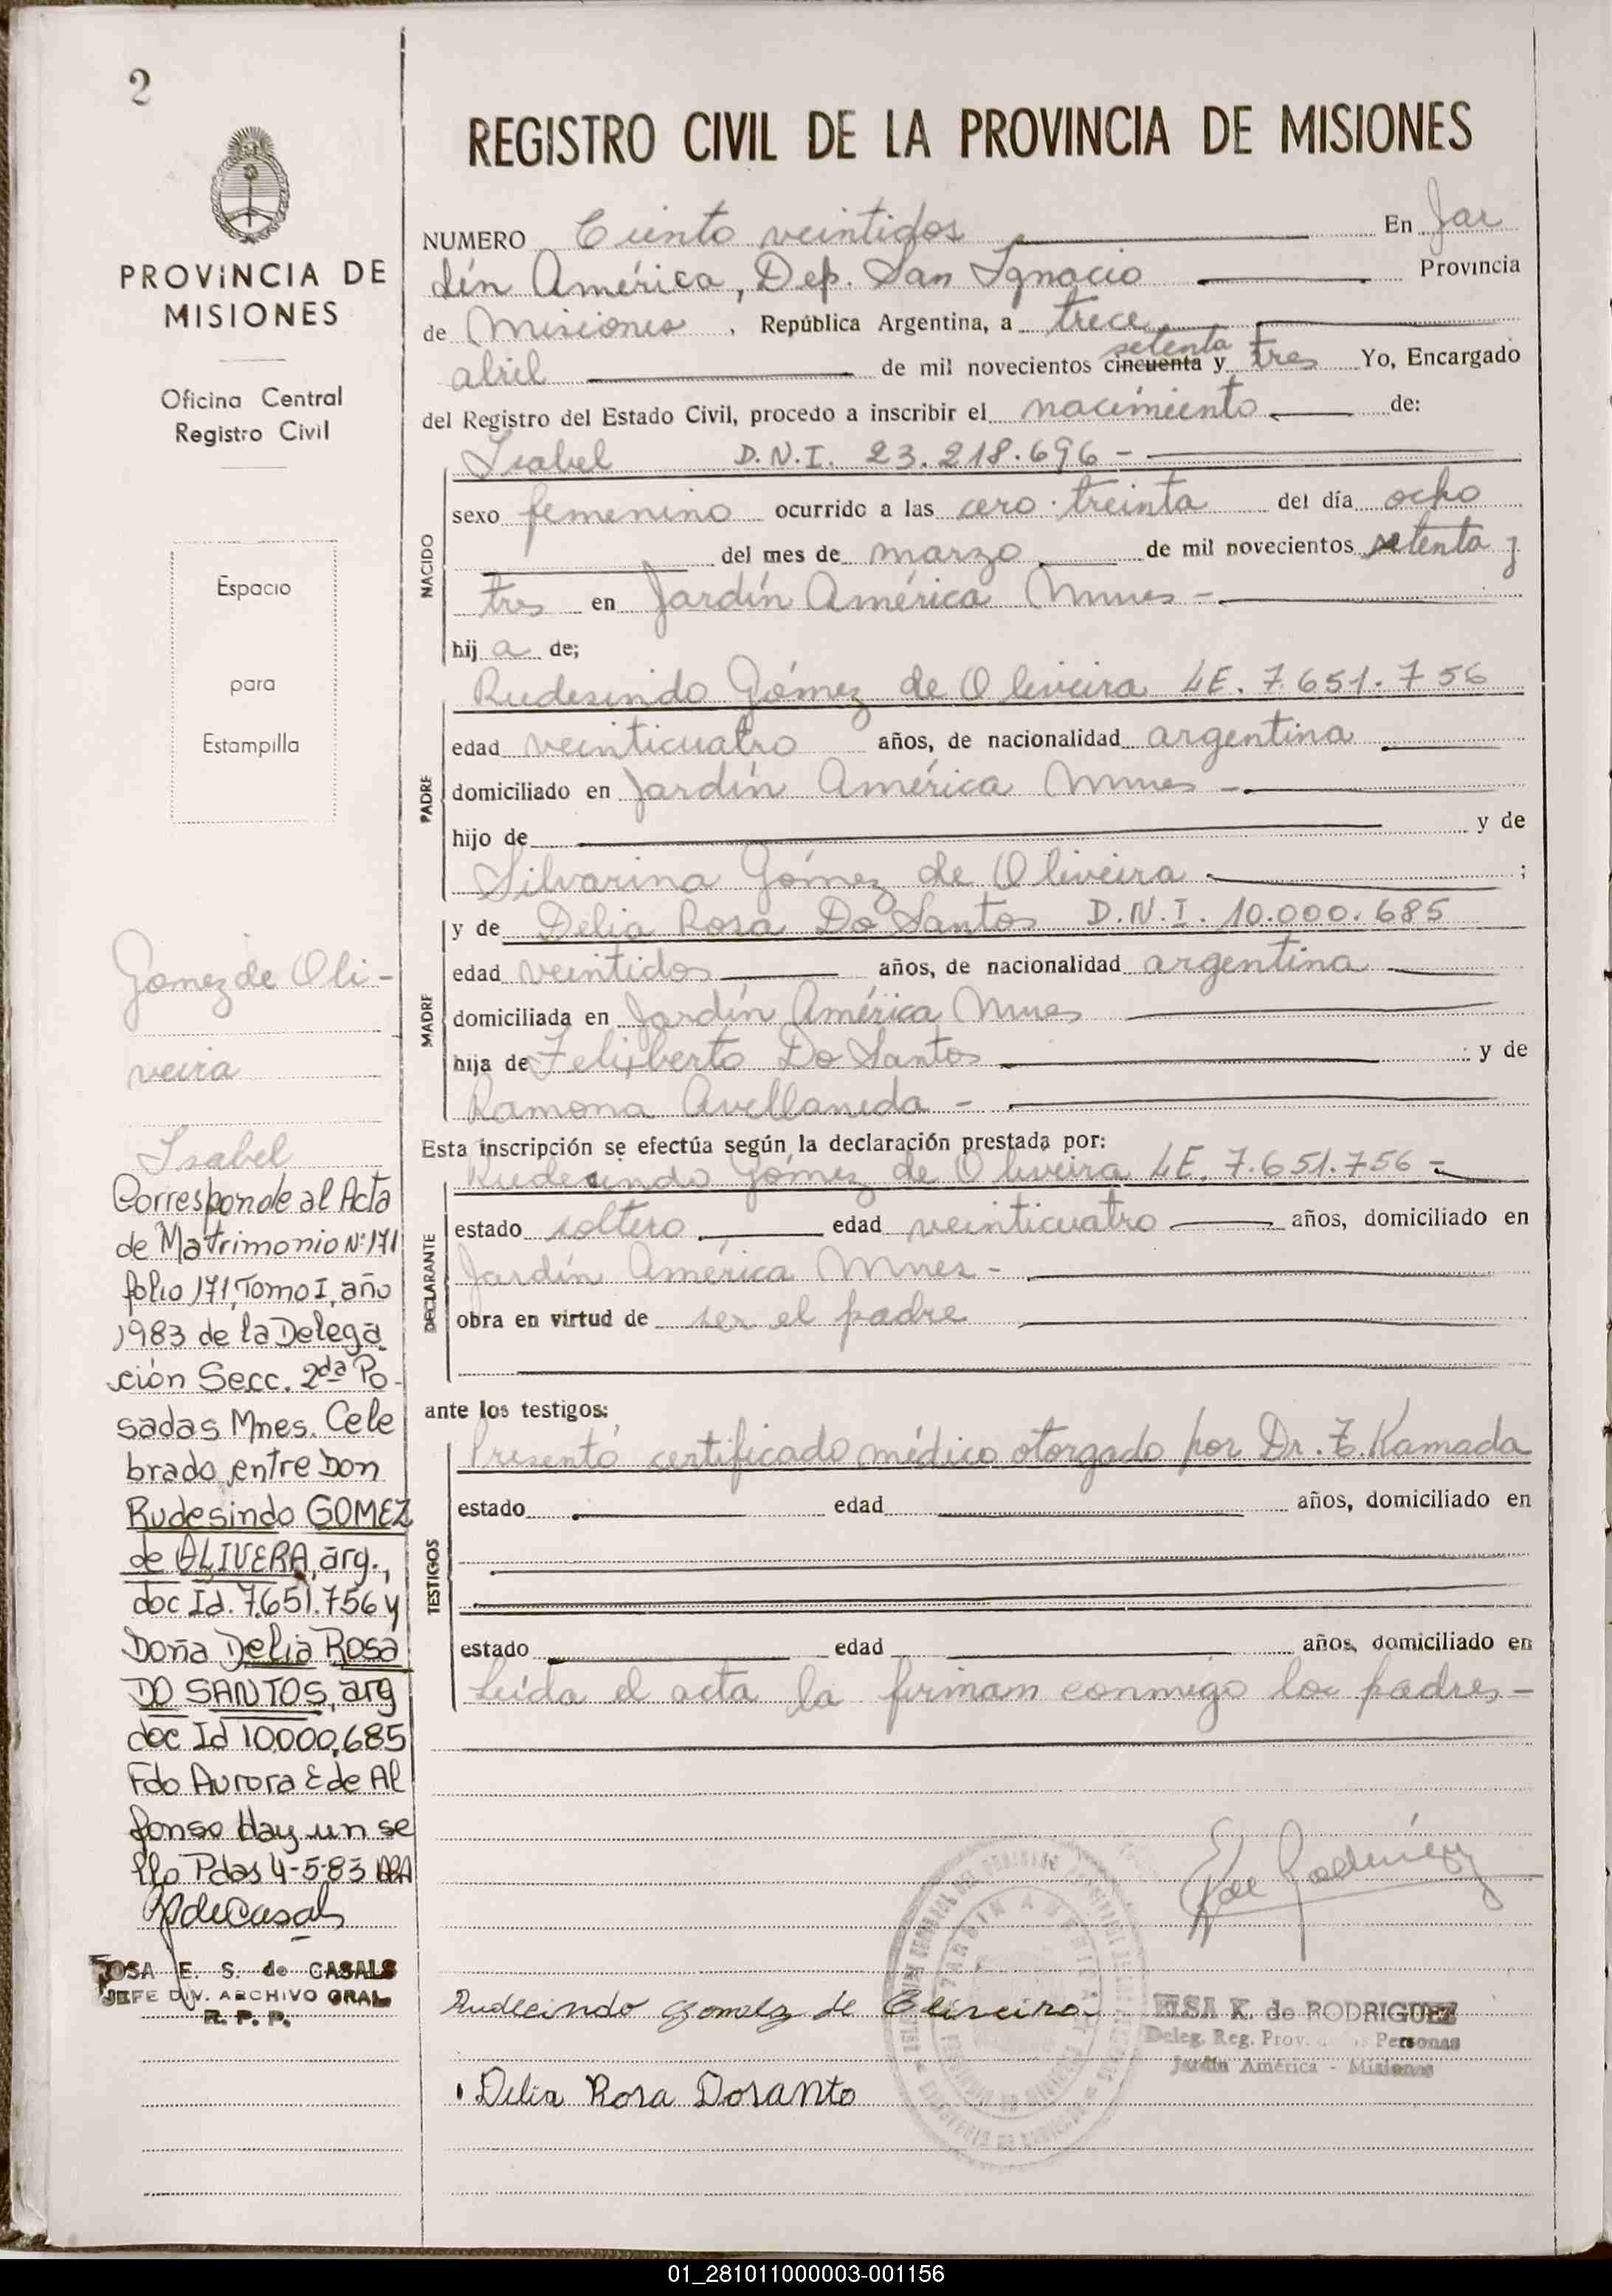 2
PROVINCIA DE
MISIONES
Oficina Central
Registro Civil
Espacio
para
Estampilla
Gomez de Oli-
veira
Isabel
Corresponde al Acta
de Matrimonio Nº171
folio 171, Tomo I, año
1983 de la Delega
ción Secc. 2da Po-
sadas Mnes. Cele
brado entre Don
Rudesindo GOMEZ
de OLIVERA, arg.,
doc Id. 7.651.756 y
Doña Delia Rosa
DO SANTOS, arg
doc Id 10.000.685
Fdo Aurora E de Al
fonso Hay un se
llo Pdas 4-5-83
RdeCasals
ROSA E. S. de CASALS
JEFE DIV. ARCHIVO GRAL.
R. P. P.
REGISTRO CIVIL DE LA PROVINCIA DE MISIONES
NUMERO Ciento veintidos En Jar
dín América, Dep. San Ignacio Provincia
de Misiones, República Argentina, a trece
setenta
abril de mil novecientos cincuenta y tres Yo, Encargado
del Registro del Estado Civil, procedo a inscribir el nacimiento de:
Isabel D.N.I. 23.218.696 -
NACIDO
sexo femenino ocurrido a las cero treinta del día ocho
del mes de marzo de mil novecientos setenta y
tres en Jardín América Mnes -
hij a de;
PADRE
Rudesindo Gómez de Oliveira LE. 7.651.756
edad veinticuatro años, de nacionalidad argentina
domiciliado en Jardín América Mnes -
hijo de y de
Silvarina Gómez de Oliveira ;
MADRE
y de Delia Rosa Do Santos D.N.I. 10.000.685
edad veintidos años, de nacionalidad argentina
domiciliada en Jardín América Mnes
hija de Feliberto Do Santos y de
Ramona Avellaneda -
Esta inscripción se efectúa según la declaración prestada por:
DECLARANTE
Rudesindo Gómez de Oliveira LE. 7.651.756 -
estado soltero edad veinticuatro años, domiciliado en
Jardín América Mnes -
obra en virtud de ser el padre
ante los testigos:
TESTIGOS
Presentó certificado médico otorgado por Dr. Z. Kamada
estado edad años, domiciliado en
estado edad años, domiciliado en
Leída el acta la firman conmigo los padres -
Rudecindo gomez de Oliveira
Delia Rosa Dosanto
ELSA K. de RODRIGUEZ
Deleg. Reg. Prov. Personas
Jardín América - Misiones
01_281011000003-001156